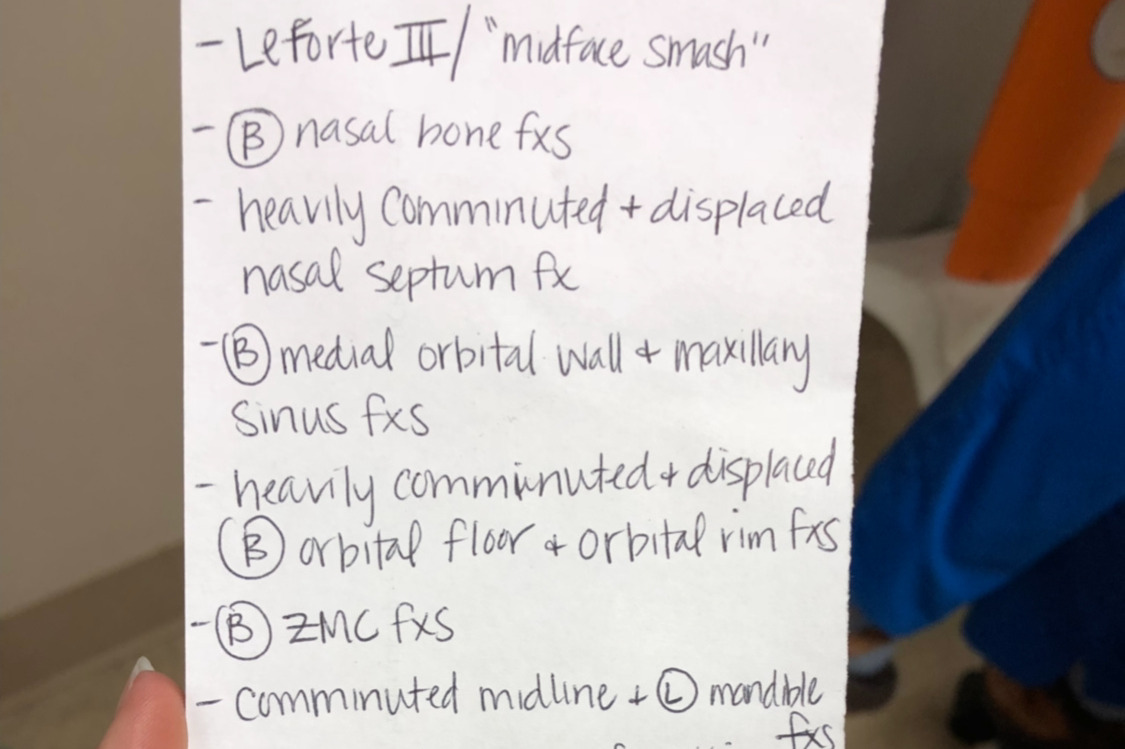 - Leforte III / "midface smash"
- Ⓑ nasal bone fxs
- heavily comminuted + displaced
nasal septum fx
- Ⓑ medial orbital wall + maxillary
sinus fxs
- heavily comminuted + displaced
Ⓑ orbital floor + orbital rim fxs
- Ⓑ ZMC fxs
- comminuted midline + Ⓛ mandible
fxs